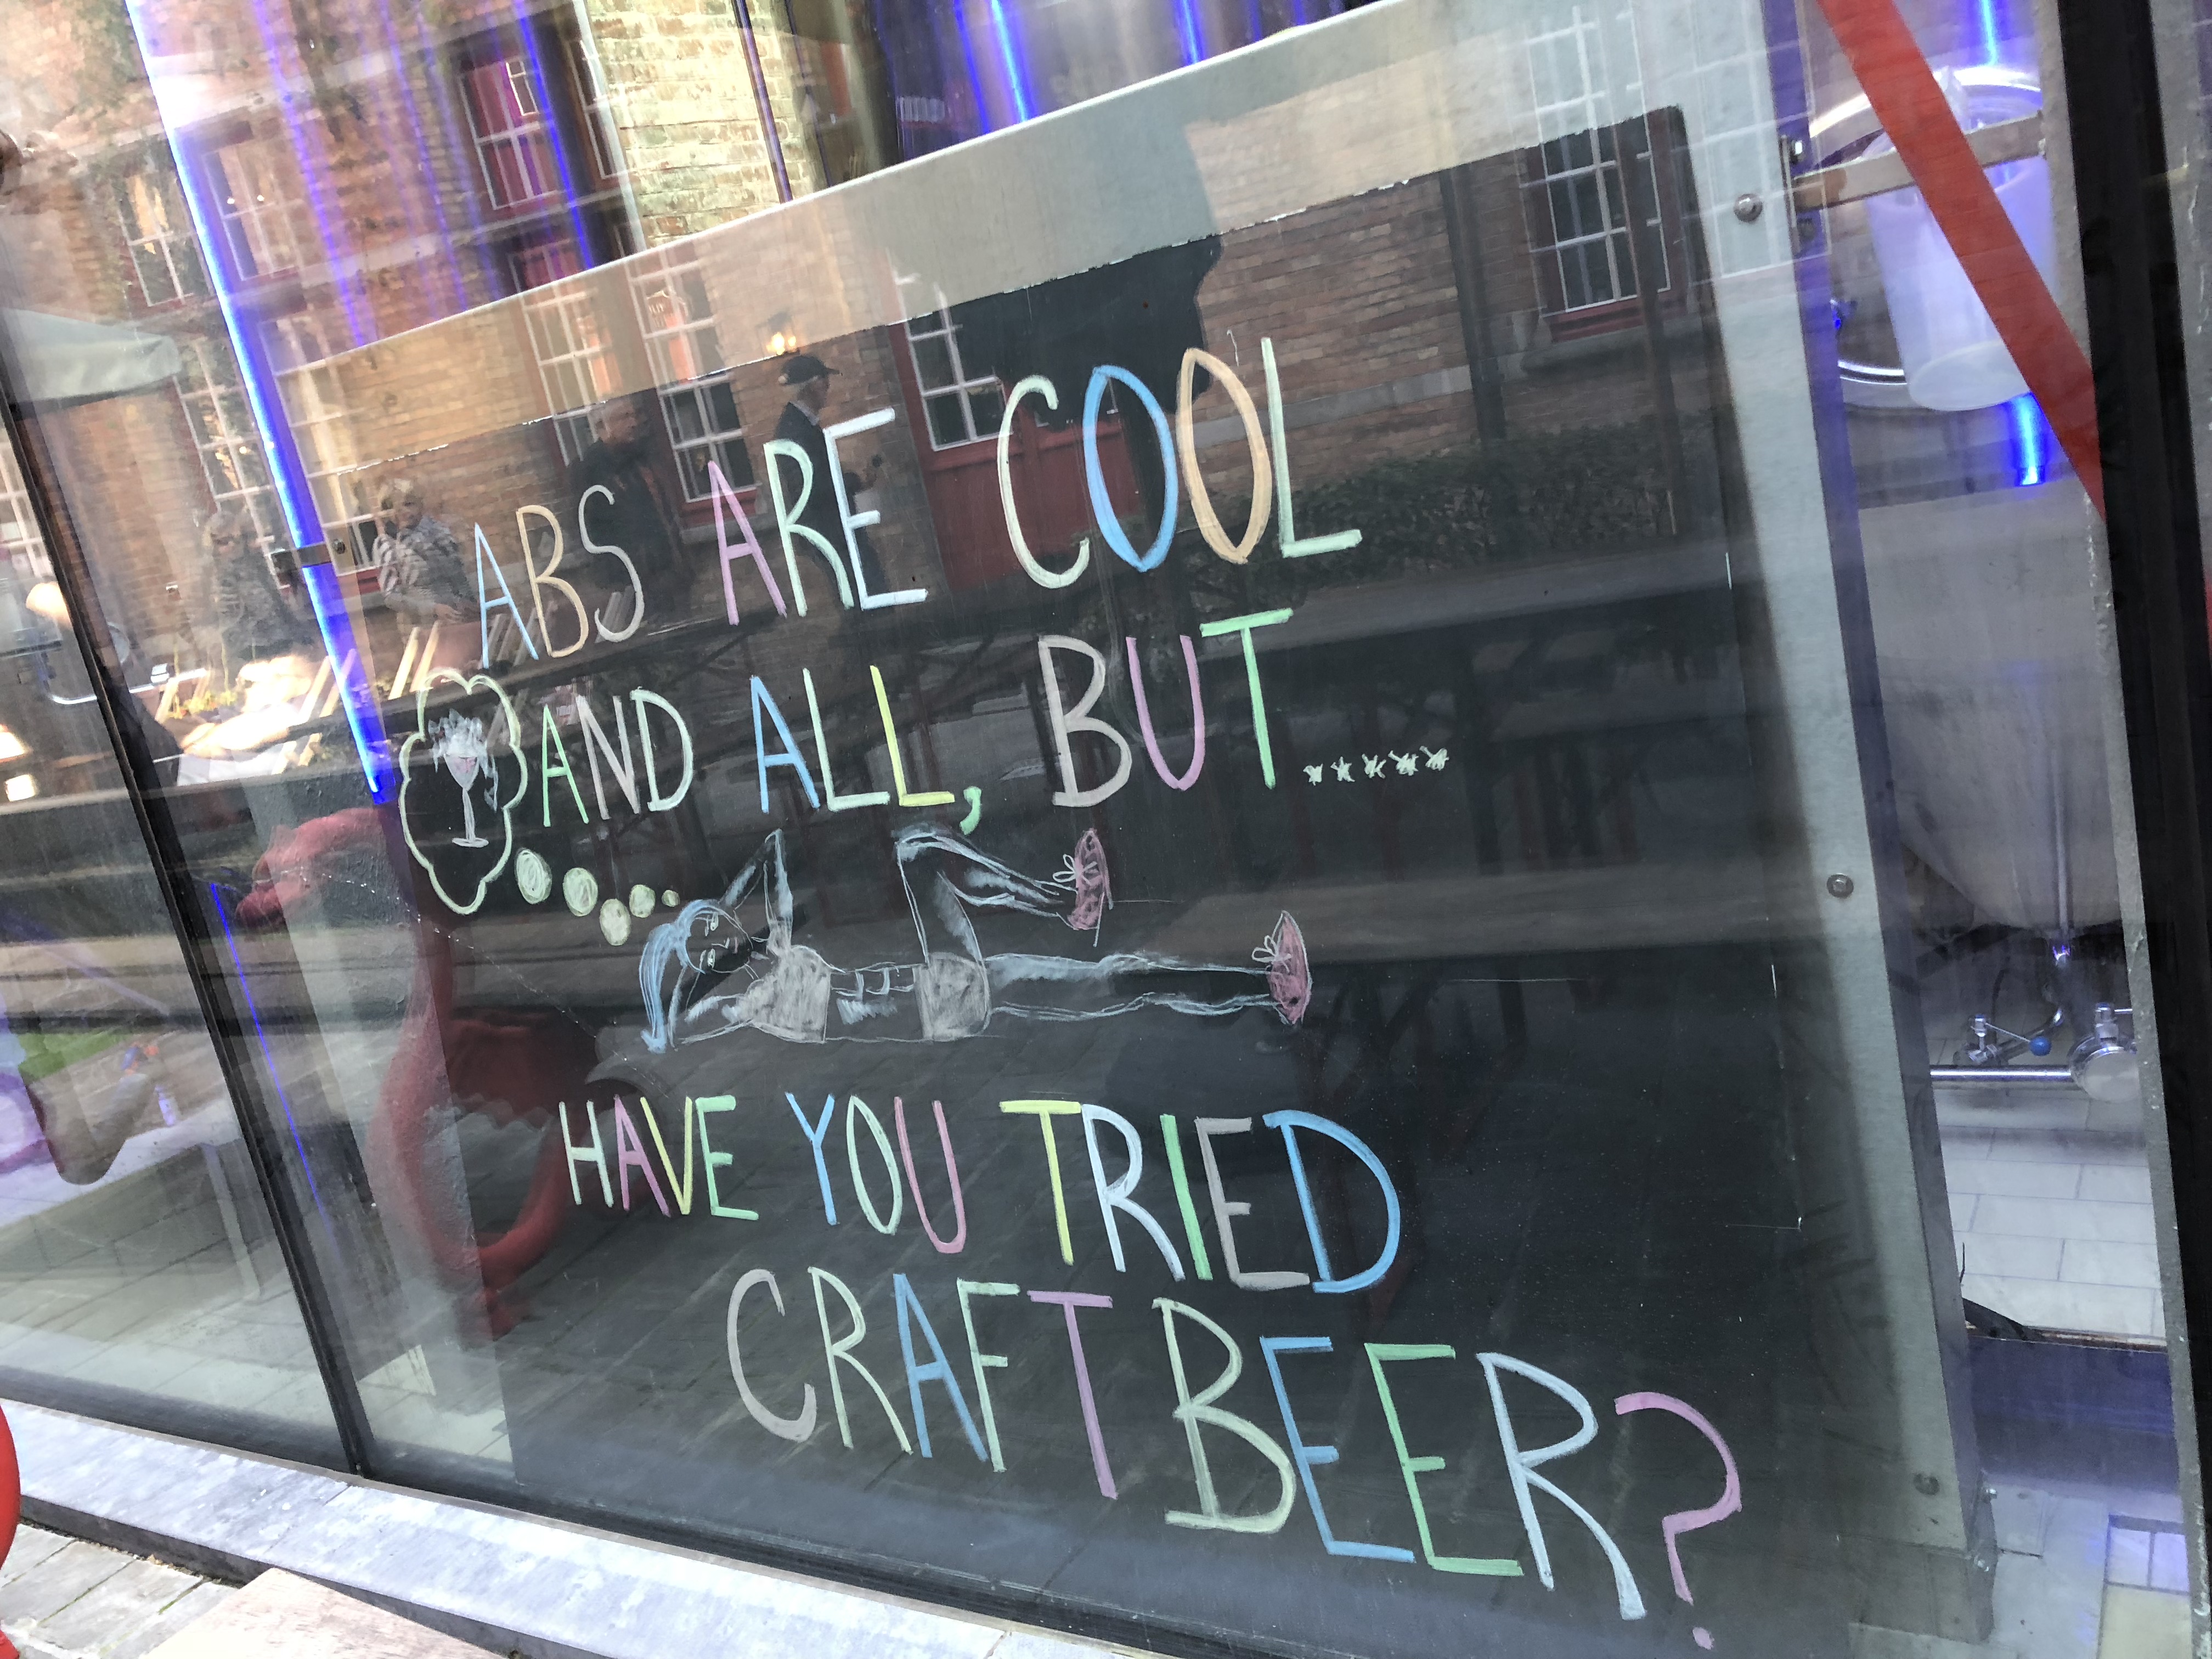 ABS ARE COOL
AND ALL, BUT.....
HAVE YOU TRIED
CRAFT BEER?